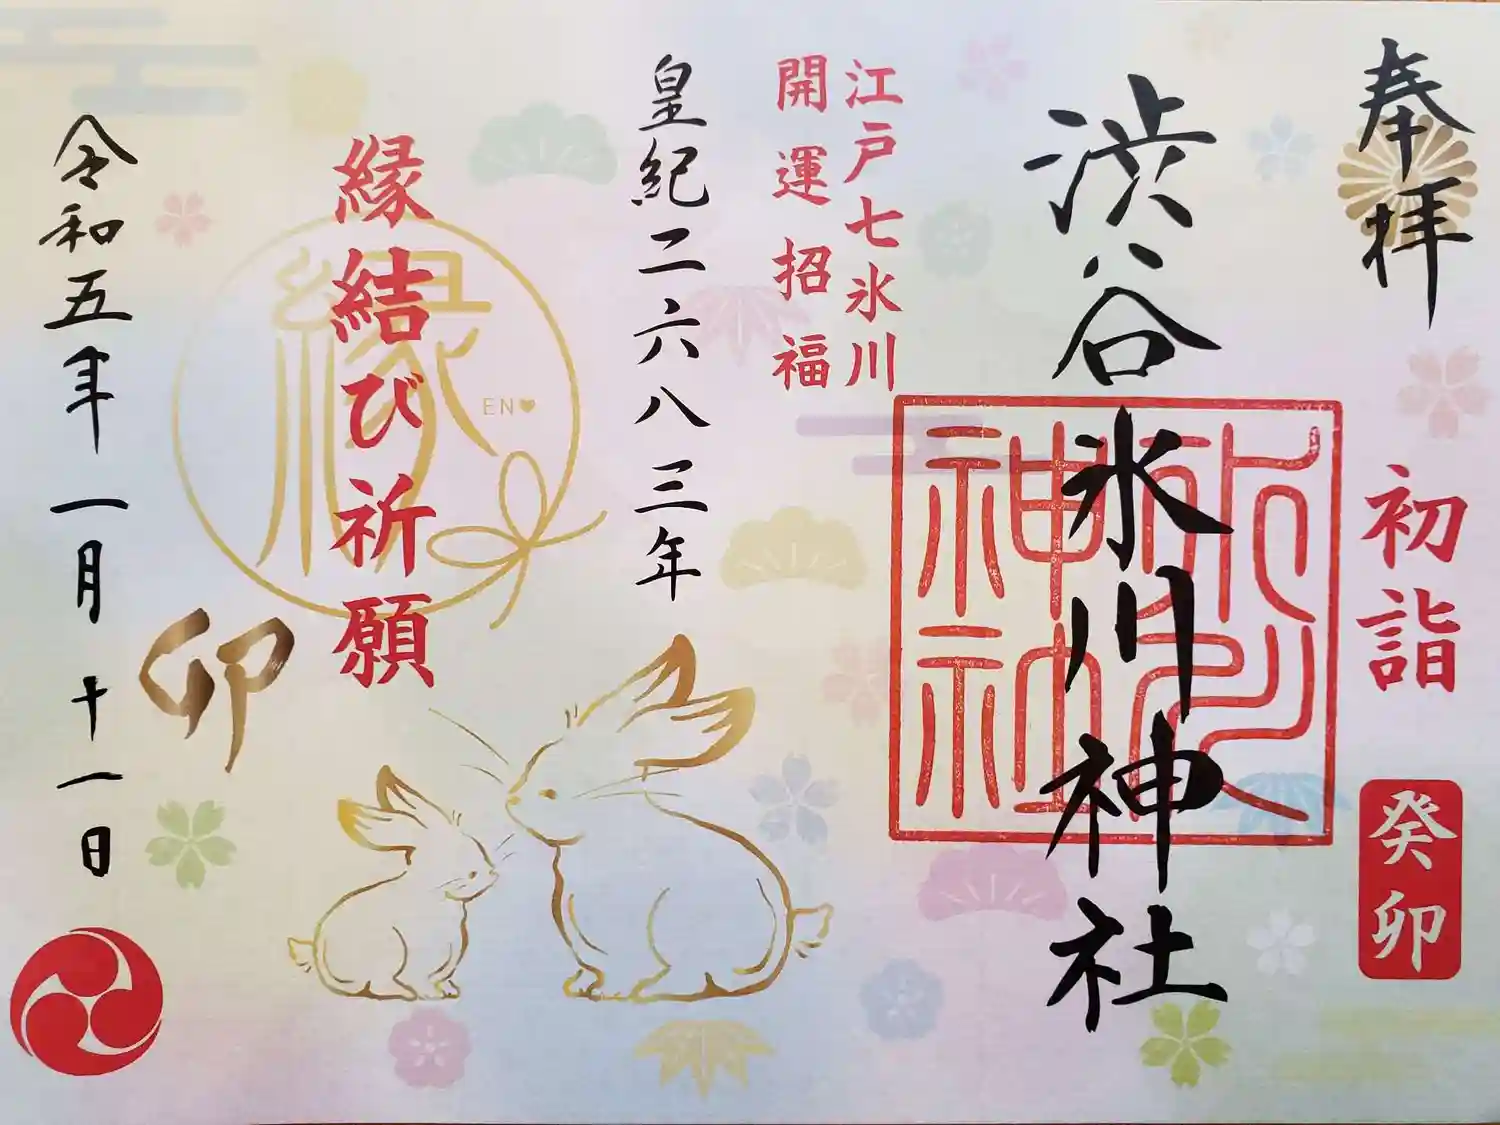 奉拝
初詣
癸卯
渋谷氷川神社
氷川神社
江戸七氷川
開運招福
皇紀二六八三年
縁結び祈願
縁
EN♥
卯
令和五年一月十一日